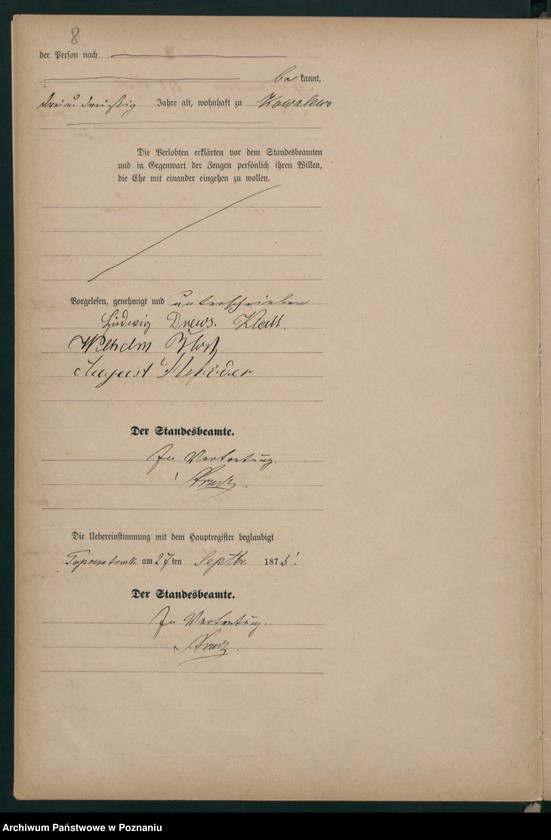 8
der Person nach
be kannt,
drei u. dreißig Jahre alt, wohnhaft zu Kowalewo
Die Verlobten erklärten vor dem Standesbeamten
und in Gegenwart der Zeugen persönlich ihren Willen,
die Ehe mit einander eingehen zu wollen.
Vorgelesen, genehmigt und unterschrieben
Ludwig Drews. Klatt.
Wilhelm
August
Der Standesbeamte.
In Vertretung.
Die Uebereinstimmung mit dem Hauptregister beglaubigt
am 27ten Septbr. 1875.
Der Standesbeamte.
In Vertretung.
Archiwum Państwowe w Poznaniu